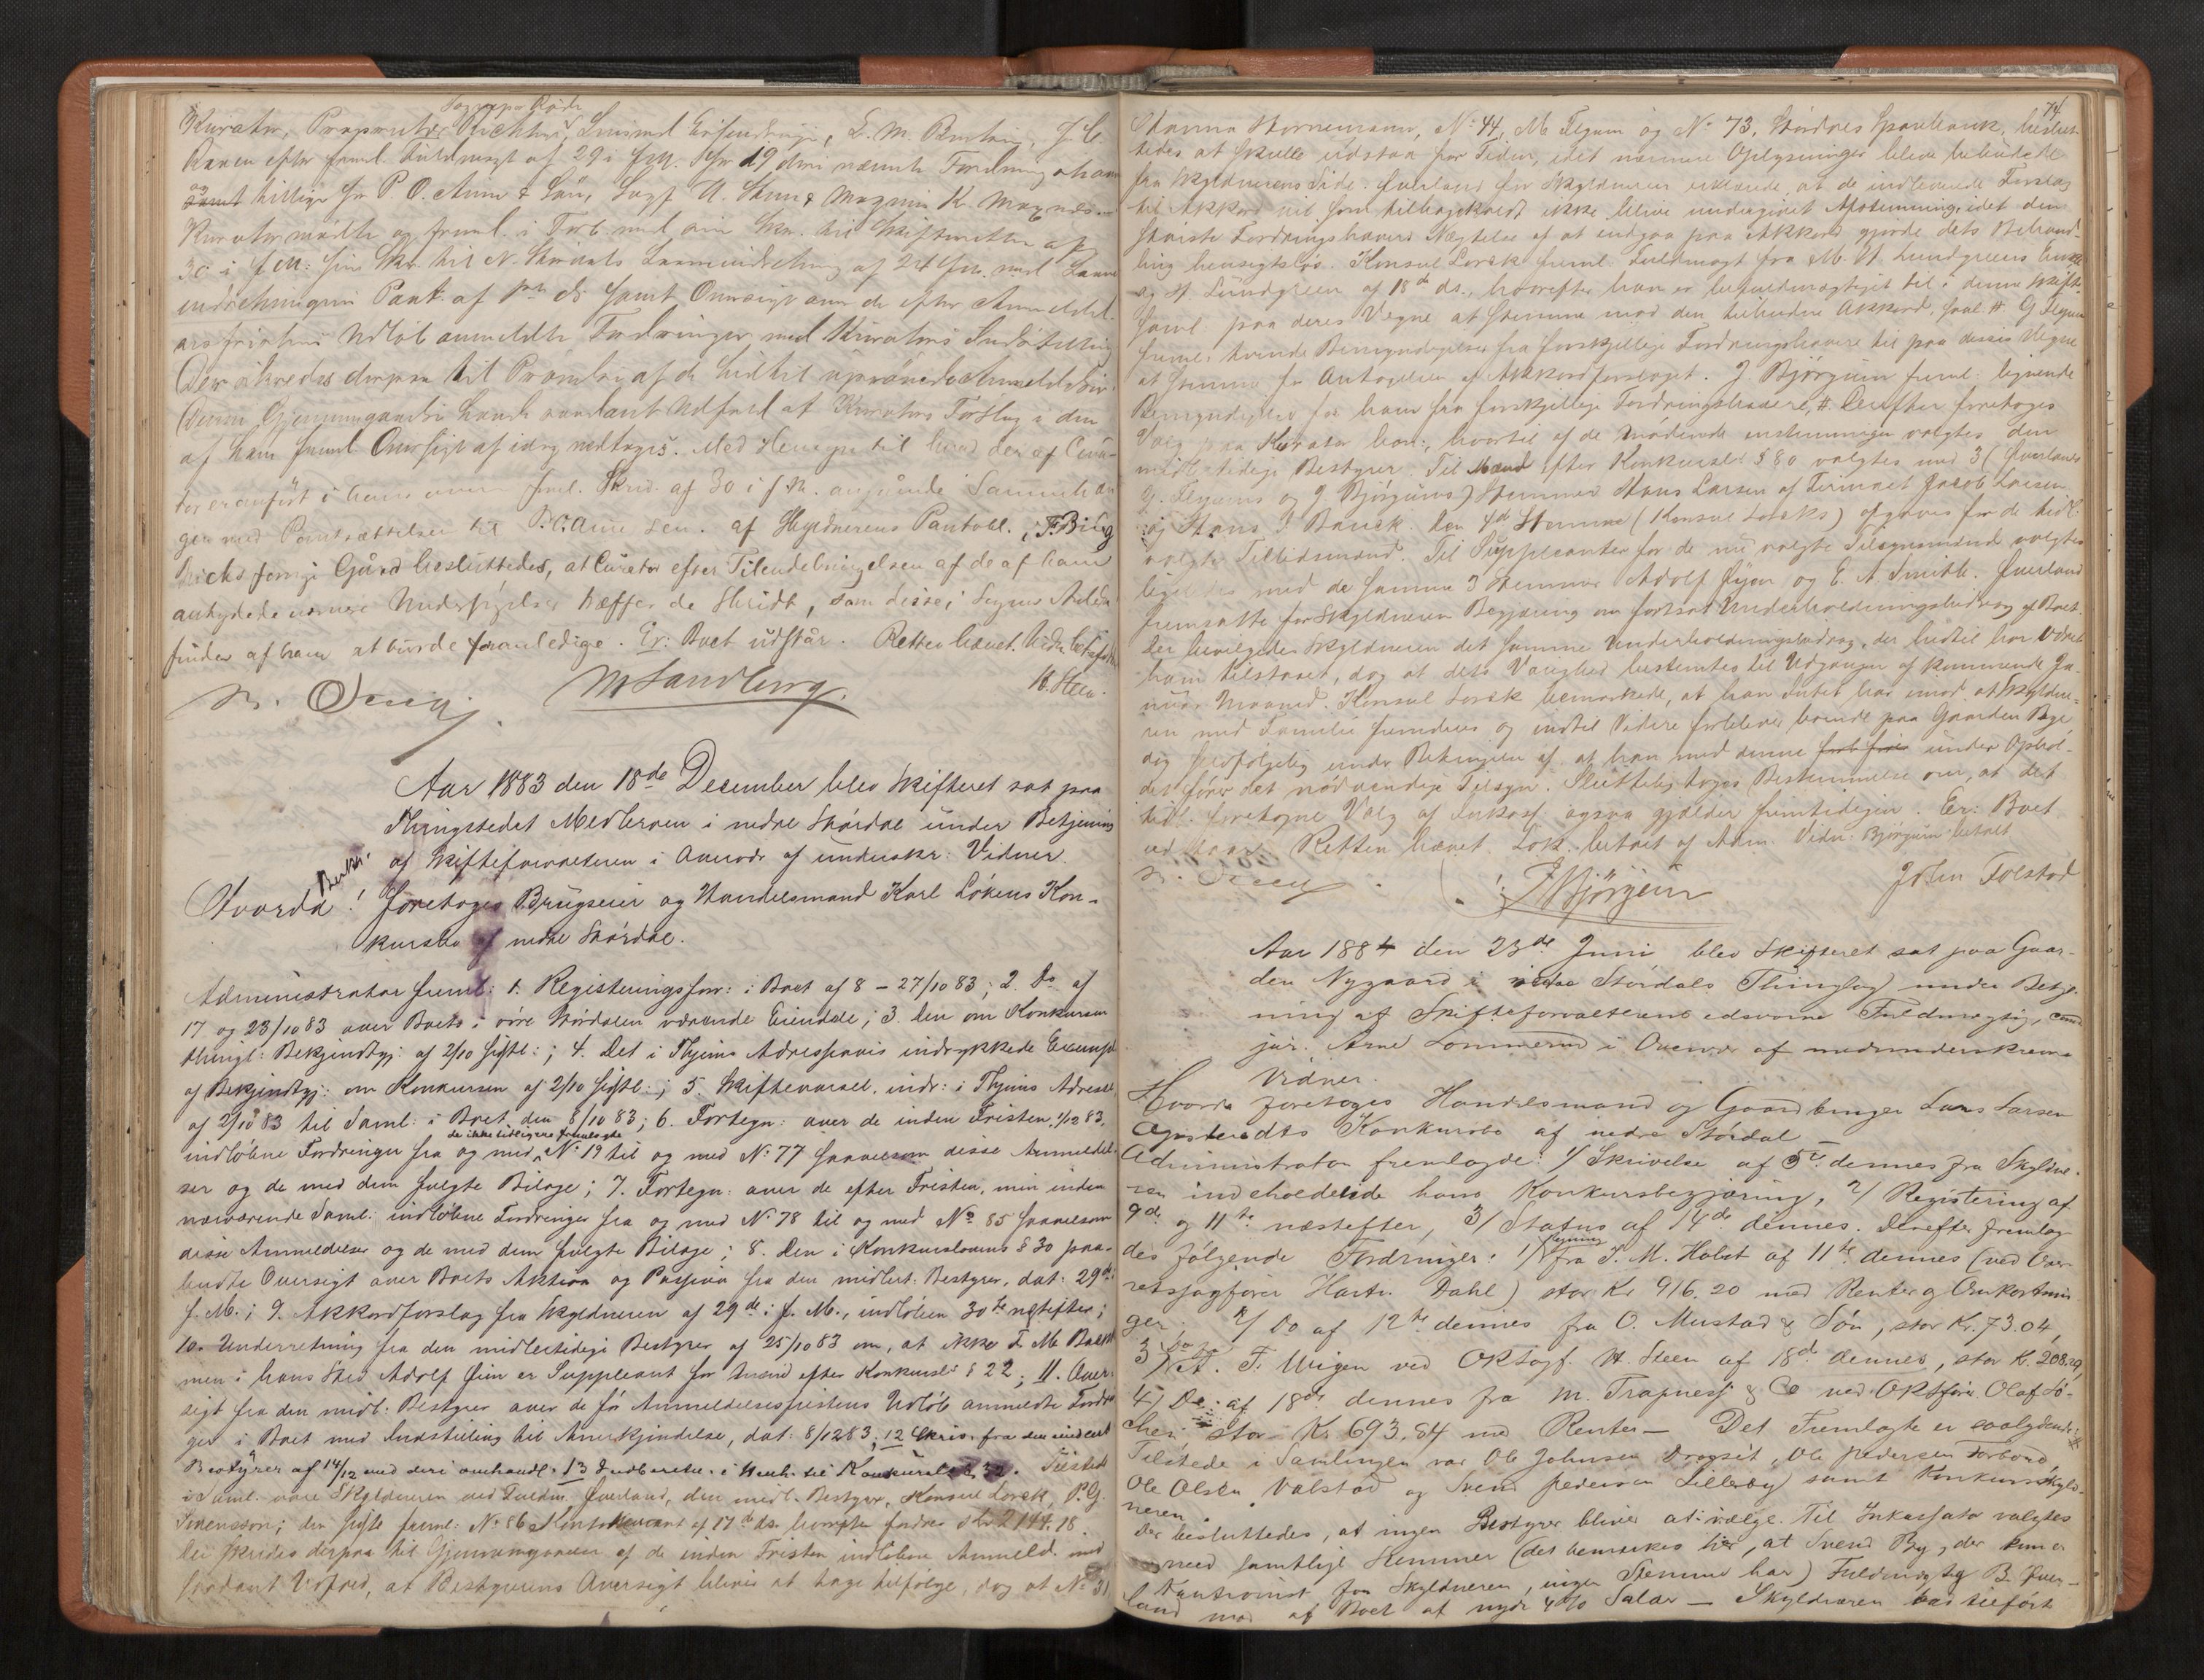 Kurator, Richter, L. M.
Ranen efter freml. Fuldmagt af 29 i f.M. for 19 deri nævnte Fordringshavere
samt tillige for P. O. Aune & Søn, Sagf. H. Steen & K.
Kurator mødte og freml. i Forb. med sin Skr. til Skifteretten af
30 i f.M. sin Skr. til N. Størdals af 24 f.M. med
af samt Oversigt over de efter Anmeldel-
sesfristens Udløb anmeldte Fordringer med Kurators Indstilling
Der skredes derpaa til Prøvelse af de hidtil uprøvede Anmeldelser.
Denne Gjennemgaaelse havde saadant Udfald at Kurators Forslag i den
af ham freml. Oversigt af idag vedtoges. Med Hensyn til hvad der af Cura-
tor er anført i hans oven freml. Skriv. af 30 i f.M. angaaende
gen med Pantsættelsen til P. O. Aune sen. af Skyldnerens Pantobl. i F. Bing
forrige Gård besluttedes, at Curator efter Tilendebringelsen af de af ham
antydede nærmere Undersøgelser træffer de Skridt, som disse i Sagens Anledn.
finder af ham at burde foranledige. Er: Boet udstår. Retten hævet.
M Sandberg. H. Steen.
Aar 1883 den 18de December blev Skifteret sat paa
Thingstedet Medleraen i nedre Størdal under Betjening
af Skifteforvalteren i Overvær af underskr: Vidner.
Hvorda! foretoges Brugseier og Handelsmand Karl Løkens Kon-
kursbo af nedre Størdal.
Administrator freml: 1. Registeringsforr: i Boet af 8 - 27/10 83; 2. Do af
17 og 23/10 83 over Boets i øvre Størdalen værende Eiendele; 3. Den om Konkursen
thingl: Bekjendtgj: af 2/10 sidstl:; 4. Det i Thjems Adresseavis indrykkede Exempl.
af Bekjendtgj: om Konkursen af 2/10 sidstl:; 5. Skiftevarsel. indr: i Thjems Adresse
af 2/10 83 til Saml: i Boet den 8/10 83; 6. Fortegn: over de inden Fristen, 1/12 83,
indløbne Fordringer fra og med de ikke tidligere fremlagte No 19 til og med No 77 saavelsom disse Anmeldel-
ser og de med dem fulgte Bilage; 7. Fortegn: over de efter Fristen, men inden
nærværende Saml: indløbne Fordringer fra og med No 78 til og med No 85 saavelsom
disse Anmeldelser og de med dem fulgte Bilage; 8. Den i Konkurslovens § 30 paa-
budte Oversigt over Boets Aktiva og Passiva fra den midlert. Bestyrer, dat: 29de
f. M.; 9. Akkordforslag fra Skyldneren af 29de i f. M., indløben 30te næstefter;
10. Underretning fra den midlertidige Bestyrer af 25/10 83 om, at ikke T. M. Bauck
men i hans Sted Adolf Øien er Suppleant for Mænd efter Konkursl: § 22; 11. Over-
sigt fra den midl. Bestyrer over de før Anmeldelsesfristens Udløb anmeldte Fordrin-
ger i Boet med Indstilling til Anerkjendelse, dat: 8/12 83; 12 Skriv. fra den midlert
Bestyrer af 14/12 med deri omhandl. 13 Indberetn. i Henh. til Konkursl. § 32. Tilstede
i Saml. vare Skyldneren ved Fuldm. Øverland, den midl. Bestyrer, Konsul Lorck, P. G.
Svensson; den sidste freml: No 86 af 17de ds. hvorefter fordres
Der skredes derpaa til Gjennemgaaelse af de inden Fristen indløbne Anmeld. med
saadant Udfald, at Bestyrerens Oversigt blives at tage tilfølge, dog at No 31
74
Hanna Hornemann, No 44, M. Flyum og No 73, Størdales Sparebank, beslut-
tedes at skulle udstaa for Tiden, idet nærmere Oplysninger bleve bebudede
fra Skyldnerens Side. Øverland for Skyldneren erklærede, at de indleverede Forslag
til Akkord vil som tilbagekaldt ikke blive undergivet Afstemning, idet den
største Fordringshavers Nægtelse af at indgaa paa Akkord gjorde dets Behand-
ling hensigtsløs. Konsul Lorck freml. Fuldmagt fra M. H. Lundgreens Enke
og H. Lundgreen af 18de ds., hvorefter han er befuldmægtiget til i denne Skifte-
saml. paa deres Vegne at stemme mod den tilbudne Akkord,
freml. tvende Bemyndigelser fra forskjellige Fordringshavere til paa disses Vegne
at stemme for Antagelsen af Akkordforslaget. J. Bjørgum freml: lignende
Bemyndigelse for ham fra forskjellige Fordringshavere, #. Derefter foretoges
Valg paa Kurator bon:, hvortil af de mødende enstemmigen valgtes den
midlertidige Bestyrer. Til Mænd efter Konkursl: § 80 valgtes med 3 (Øverlands
G. Flyums og J. Bjørgums) Stemmer Hans Larsen af Firmaet Jacob Larsen
og Hans J. Bauck. Den 4de Stemme (Konsul Lorcks) afgaves for de tidl.
valgte Tillidsmænd. Til Suppleanter for de nu valgte Tilsynsmænd valgtes
ligeledes med de samme 3 Stemmer Adolf Øyen og E. A. Smith. Øverland
fremsatte for Skyldneren Begjæring om fortsat Underholdningsbidrag af Boet.
Der bevilgedes Skyldneren det samme Underholdningsbidrag, der hidtil har været
ham tilstaaet, dog at dets Varighed bestemtes til Udgangen af kommende Ja-
nuar Maaned. Konsul Lorck bemærkede, at han Intet har imod, at Skyldne-
ren med Familie fremdeles og indtil Videre forbliver boende paa Gaarden
selvfølgelig under Betingelse af at han med denne under Ophol-
det fører det nødvendige Tilsyn. Sluttelig toges Bestemmelse om, at det
tidl. foretagne Valg af Inkass: ogsaa gjælder fremtidigen. Er: Boet
ud staar. Retten hævet. Lok. betalt af Adm. Vidn: Bjørgum betalt
J Bjørgum John Folstad
Aar 1884 den 23de Juni blev Skifteret sat paa Gaar-
den Nygaard i nedre Stördals Thinglag under Betje-
ning af Skifteforvalterens edsvorne Fuldmægtig, cand.
jur. Arne Sommerud i Overvær af medunderskrevne
Vidner.
Hvorda foretoges Handelsmand og Gaardbruger Lars Larsen
Konkursbo af nedre Stördal —
Administrator fremlagde: 1/ Skrivelse af 5te dennes fra Skyldne-
ren indeholdende hans Konkursbegjæring, 2/ Registering af
9de og 11te næstefter, 3/ Status af 14de dennes. Derefter fremlag-
des følgende Fordringer: 1/ Regning fra T. M. Holst af 11te dennes (ved Over-
retssagfører Hartv. Dahl) stor Kr 916.20 med Renter og Omkostnin-
ger. 2/ Do af 12te dennes fra O. Mustad & Søn, stor Kr. 73.04,
3/ Do fra A. F. Wigen ved ORSagf. H. Steen af 18de dennes, stor K. 208.29,
4/ Do af 18de dennes fra M. Trapness & Co ved ORSfører Olaf Lö-
chen stor Kr 693.84 med Renter — Det Fremlagte er saalydende: #
Tilstede i Samlingen var Ole Johnsen Dragset, Ole Pedersen Forbord,
Ole Olsen Valstad og Svend Pedersen Lilleby samt Konkursskyld-
neren.
Der besluttedes, at ingen Bestyrer bliver at vælge. Til Inkassator valgtes
med samtlige Stemmer (det bemærkes her, at Svend By, der kun er
Kautionist for Skyldneren, ingen Stemme har) Fuldmægtig B. Øver-
land mod af Boet at nyde 4% Salær — Skyldneren bad tilført